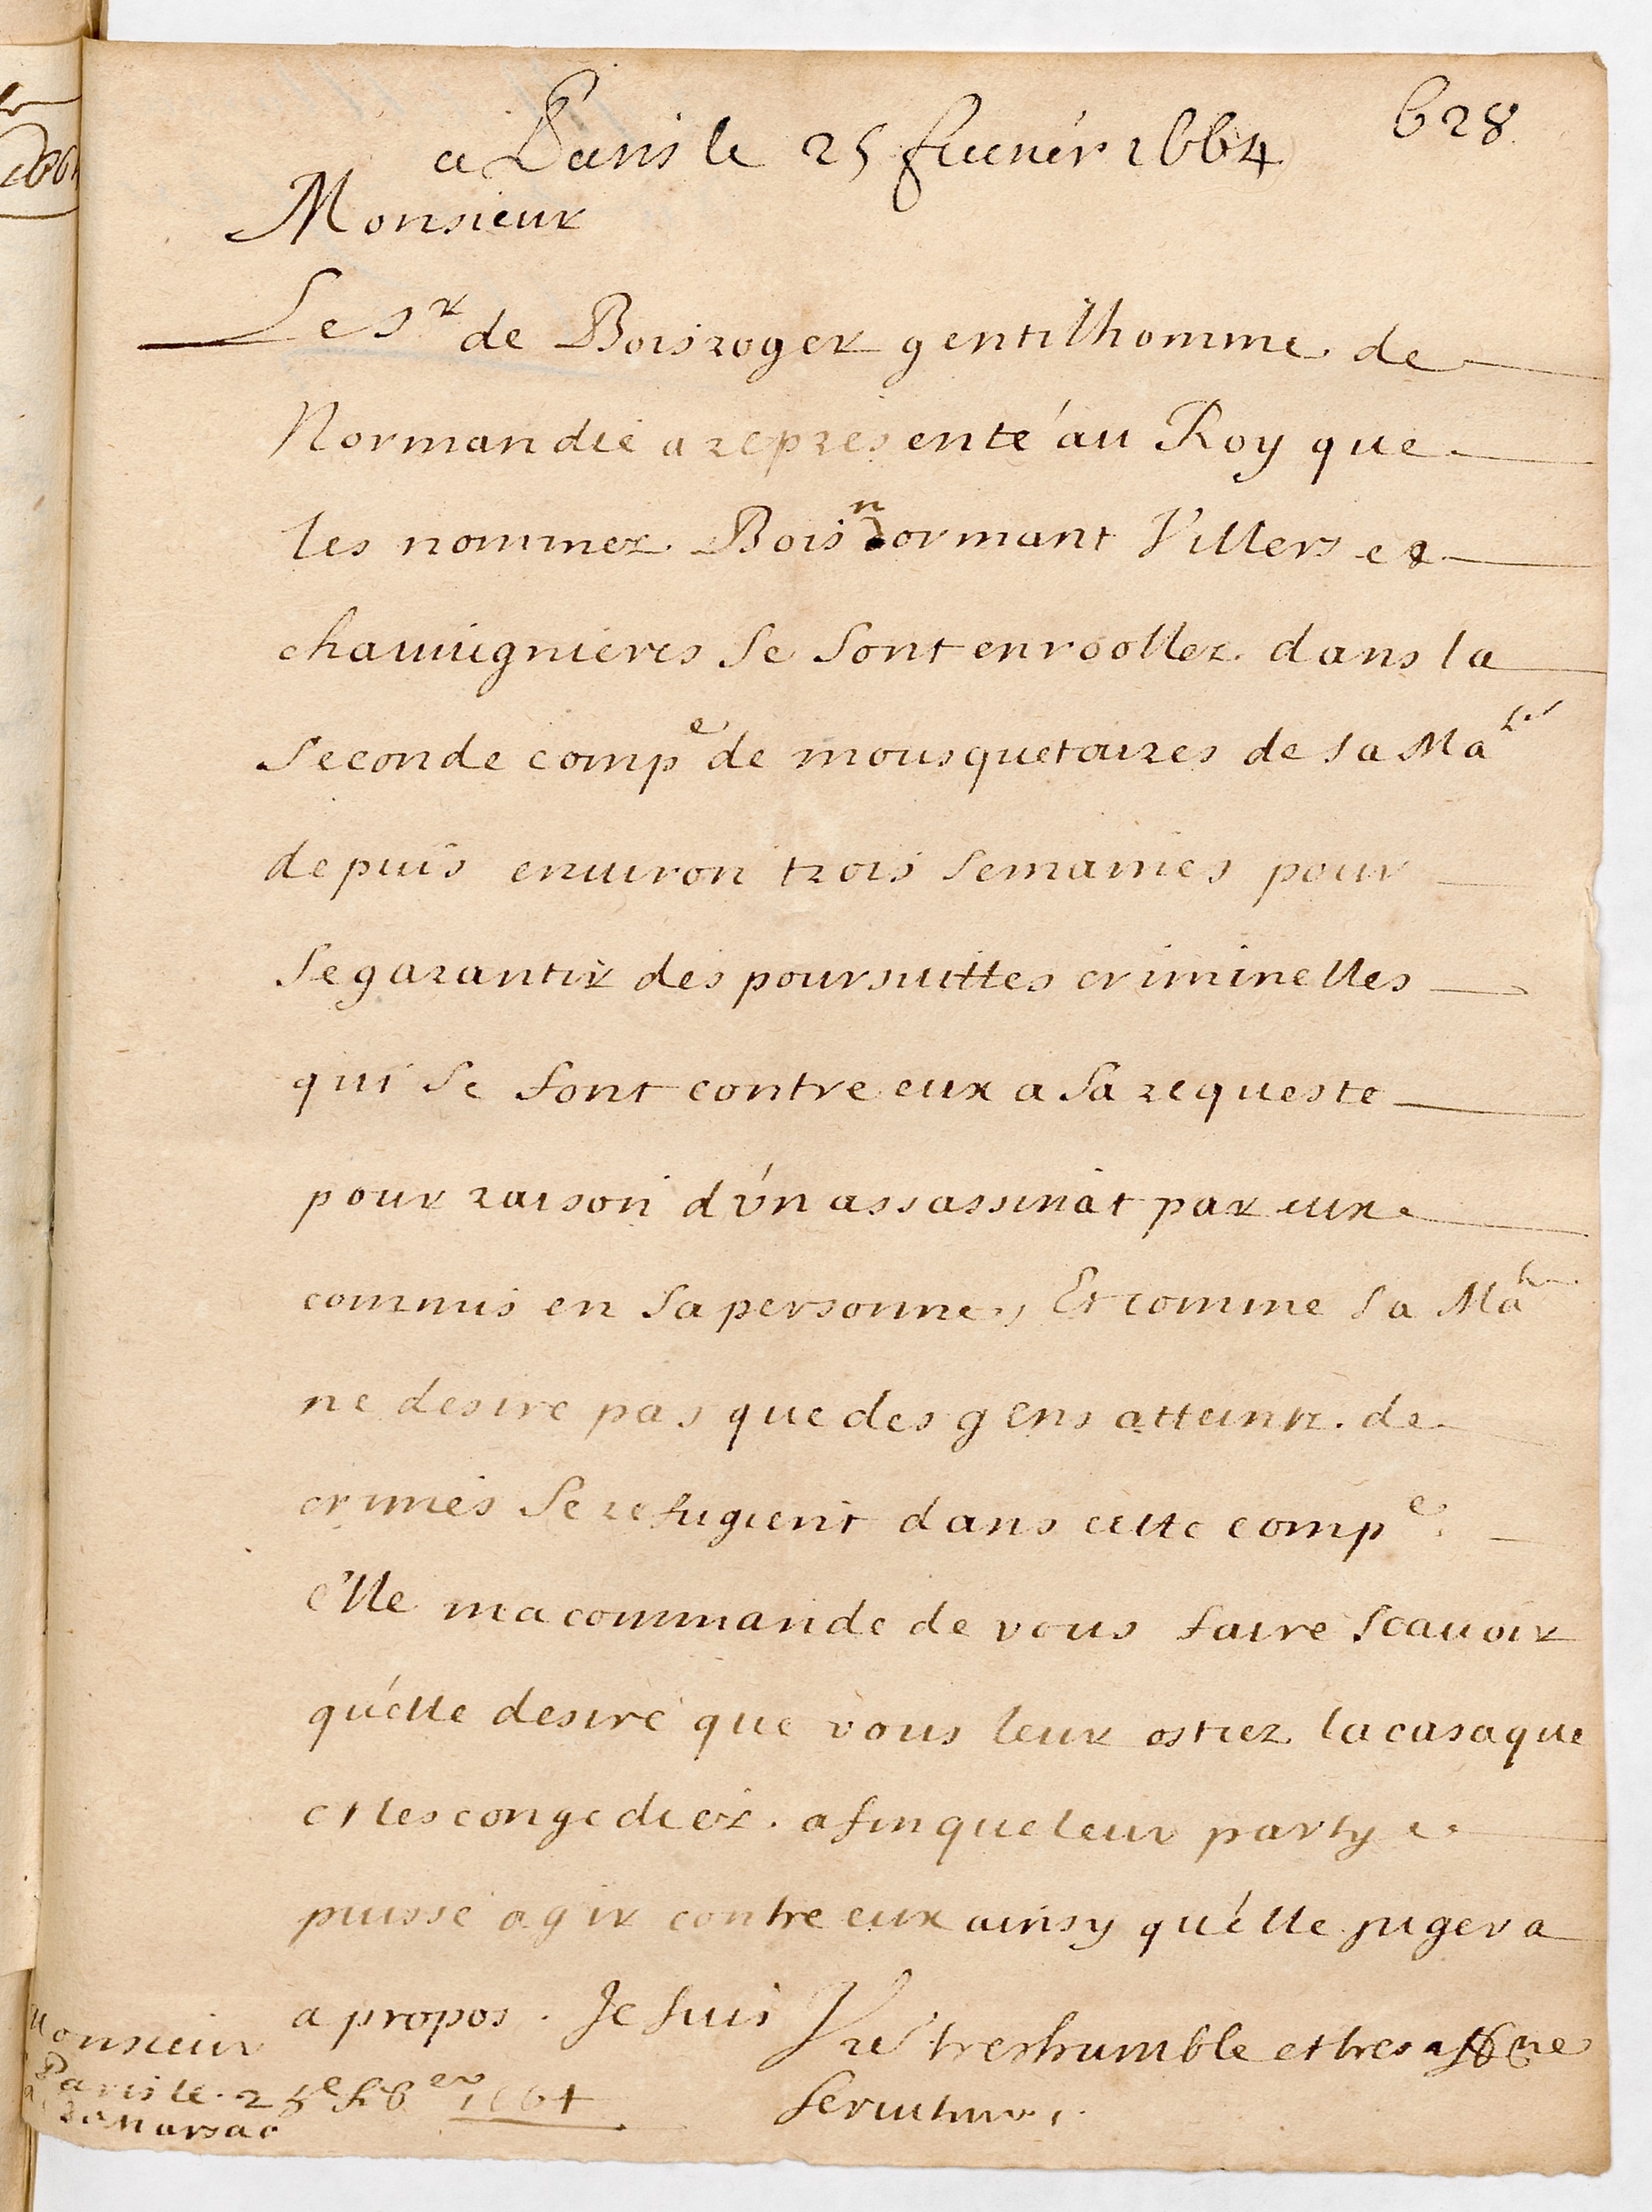 628
a Paris le 25 feurier 1664
Monsieur
Le Sr de Boisroger gentilhomme de
Normandie a representé au Roy que
les nommez Boisnormant Villers et
chauuignieres se sont enroollez dans la
seconde compe de mousquetaires de sa Mate
depuis enuiron trois semaines pour
se garantir des poursuittes criminelles
qui se font contre eux a sa requeste
pour raison d'vn assassinat par eux
commis en sa personne, Et comme sa Mate
ne desire pas que des gens atteintz de
crimes se refugient dans cette compe
elle ma commandé de vous faire scauoir
qu'elle desire que vous leur ostiez la casaque
et les congediez. afin que leur partye
puisse agir contre eux ainsy qu'elle jugera
a propos. Je suis Vre treshumble et tres affne
seruiteur,
Monsieur
Paris le 25e feber 1664
de Marsac